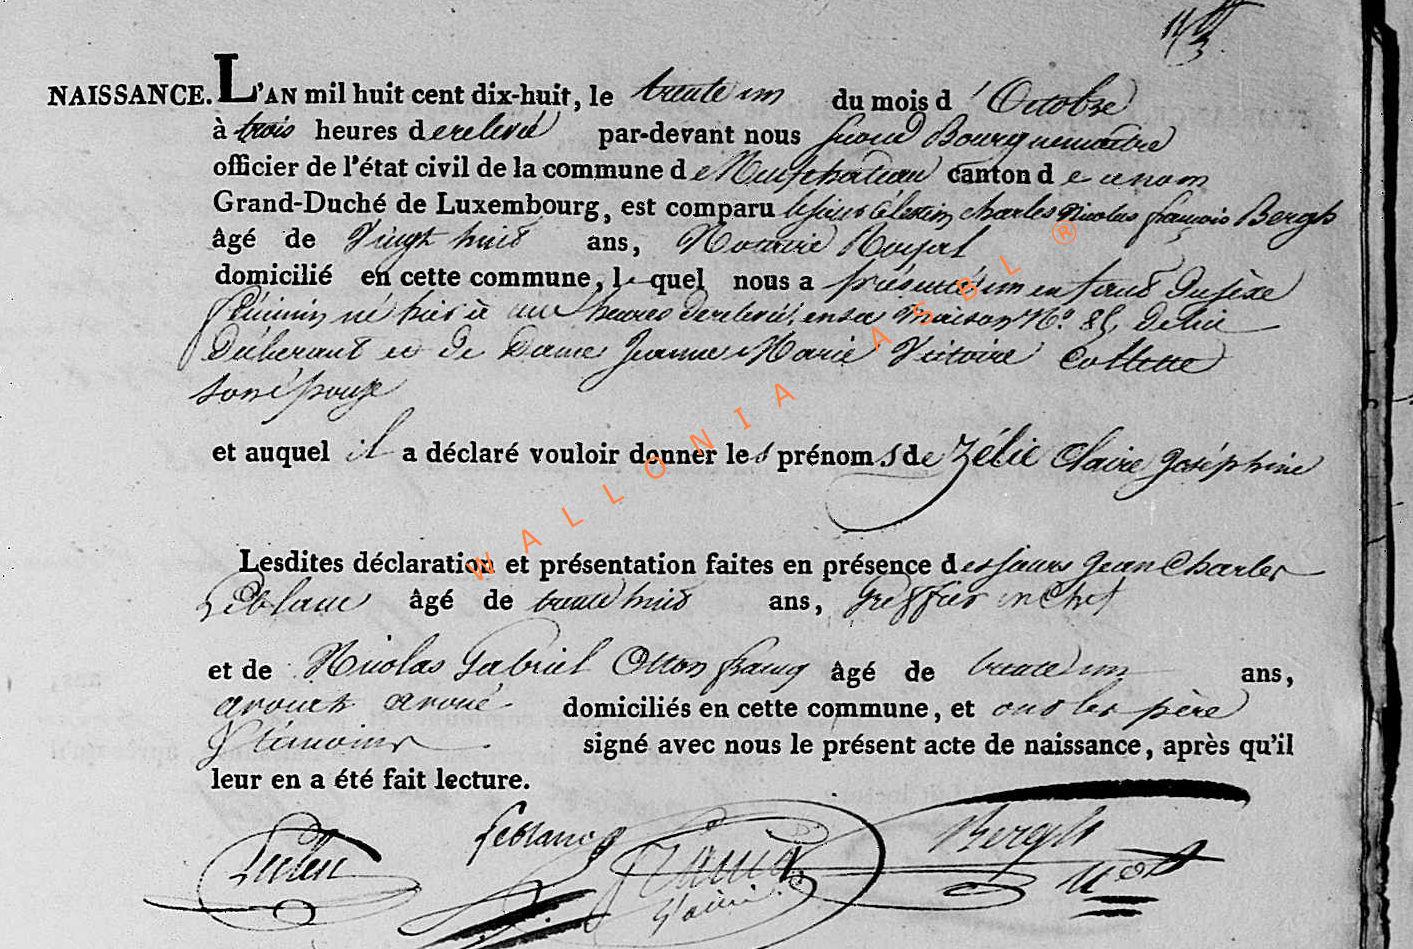 NAISSANCE. L'AN mil huit cent dix-huit, le trente un du mois d'Octobre
à trois heures de relevée par-devant nous second Bourguemaitre
officier de l'état civil de la commune de Neufchateau canton de ce nom
Grand-Duché de Luxembourg, est comparu le sieur Célestin Charles Nicolas François Bergh
âgé de Vingt huit ans, Notaire Royal
domicilié en cette commune, lequel nous a présenté un enfant du sexe
féminin né hier à heures de relevée, en sa maison N.o 85, de lui
Déclarant et de Dame Jeanne Marie Victoire Collette
son épouse
et auquel il a déclaré vouloir donner les prénoms de Zélie Claire Joséphine
Lesdites déclaration et présentation faites en présence des sieurs Jean Charles
Leblanc âgé de trente huit ans, Greffier en Chef
et de Nicolas Gabriel Otton Francq âgé de trente un ans,
avocat avoué domiciliés en cette commune, et ont les père
& témoins signé avec nous le présent acte de naissance, après qu'il
leur en a été fait lecture.
Leblanc Francq Bergh
not
WALLONIA ASBL ®